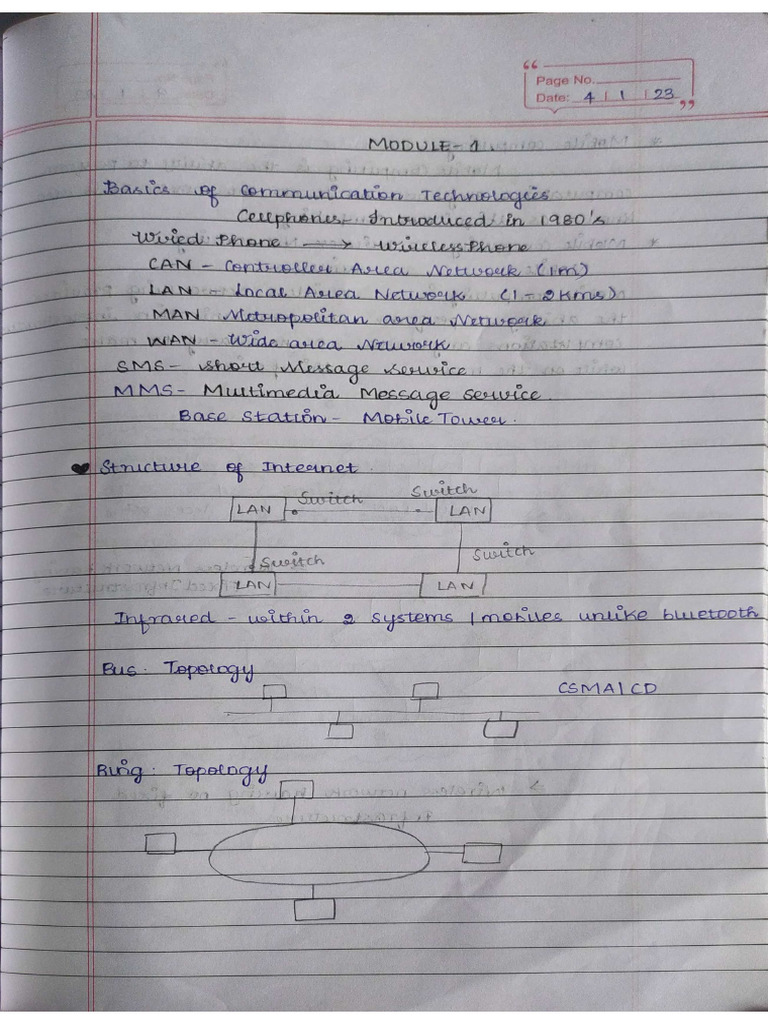 Page No.
Date: 4 1 23
MODULE-1
Basics of Communication Technologies
Cellphones- Introduced in 1980's
Wired Phone → wirelessPhone
CAN - Controller Area Network (1m)
LAN - Local Area Network (1-2kms)
MAN Metropolitan area Network
WAN - Wide area Network
SMS - Short Message service
MMS - Multimedia Message service.
Base Station - Mobile Tower.
Structure of Internet.
LAN Switch Switch LAN
Switch Switch
LAN LAN
Infrared - within 2 systems / mobiles unlike bluetooth
Bus. Topology
CSMA/CD
Ring. Topology